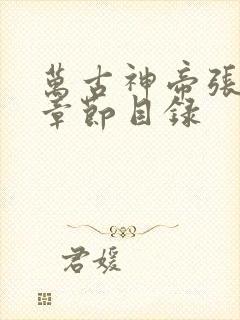 萬古神帝張
章節目錄
君媛